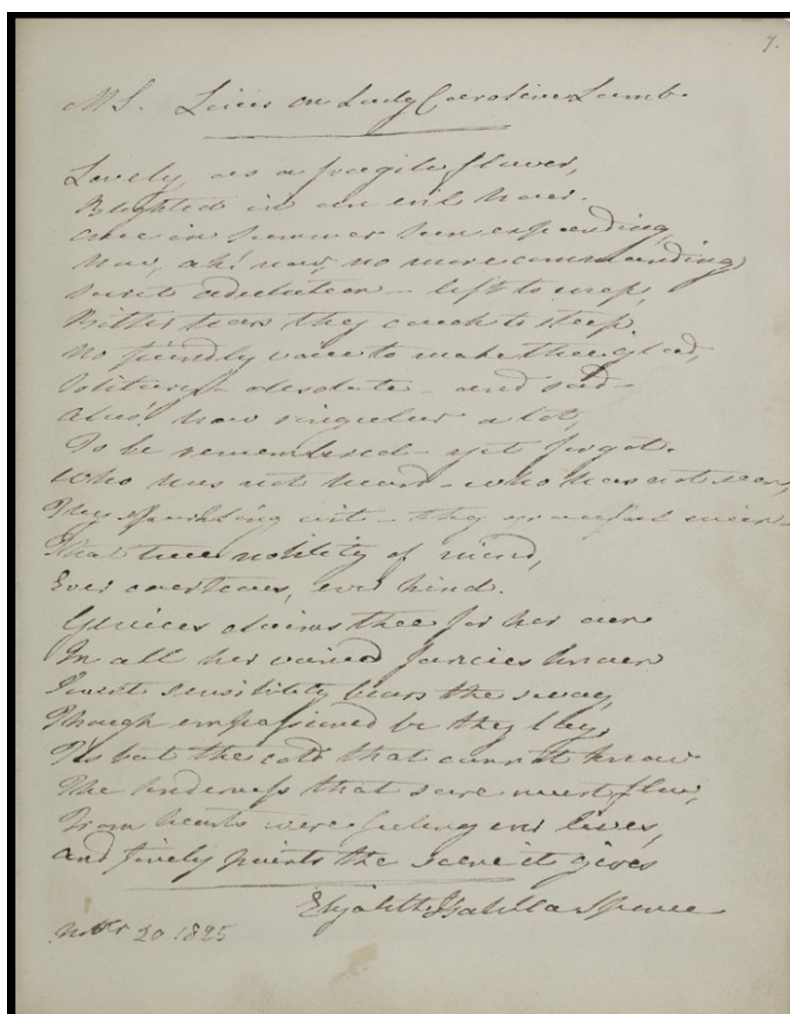 7.
MS. Lines on Lady Caroline Lamb.
Lovely, as a fragile flower,
Blighted in an evil hour.
Once in summer sun expanding,
Now, ah! now, no more commanding
Sweet adulation – left to weep,
Bitter tears thy couch to steep.
No friendly voice to make thee glad,
Solitary – desolate – and sad –
Alas! how singular a lot,
To be remembered – yet forgot.
Who has not heard – who has not seen,
Thy sparkling wit – thy graceful mien –
That true nobility of mind,
Ever courteous, ever kind.
Genius claims thee for her own
In all her varied fancies known
Sweet sensibility bears the sway,
Though empassioned be thy lay,
Tis but the cold that cannot know
The tenderness that sure must flow,
From hearts were feeling ever lives,
And finely paints the scene it gives
Elizabeth Isabella Spence
Novbr 20 1825